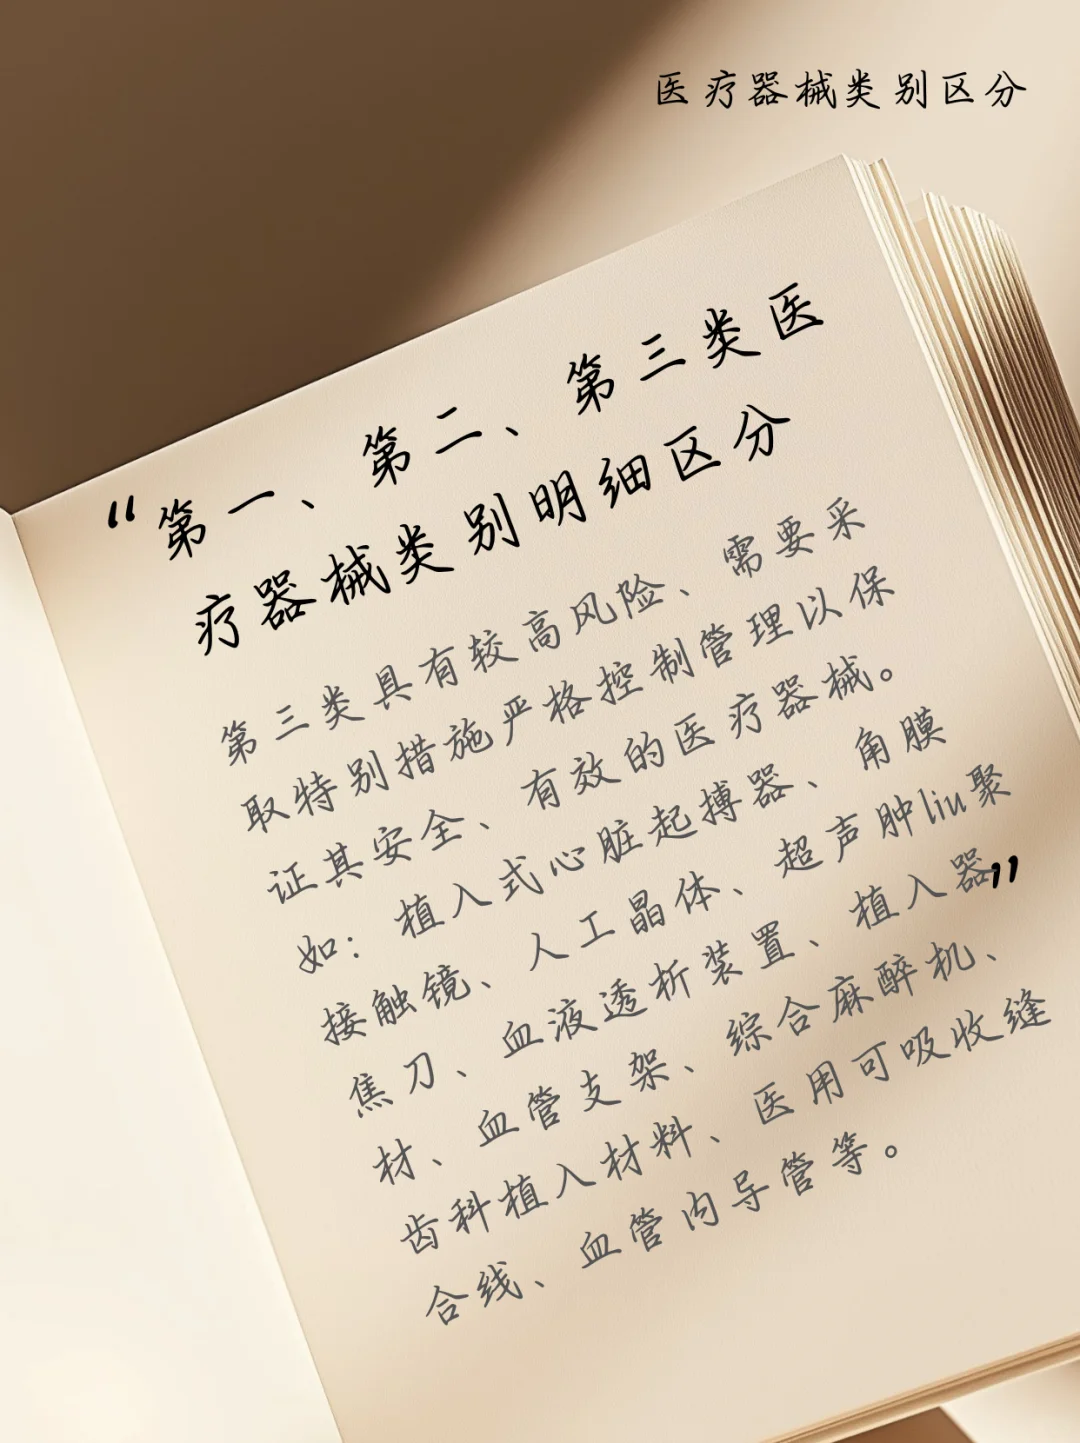 医疗器械类别区分
“第一、第二、第三类医
疗器械类别明细区分
第三类具有较高风险、需要采
取特别措施严格控制管理以保
证其安全、有效的医疗器械。
如：植入式心脏起搏器、角膜
接触镜、人工晶体、超声肿liu聚
焦刀、血液透析装置、植入器”
材、血管支架、综合麻醉机、
齿科植入材料、医用可吸收缝
合线、血管内导管等。